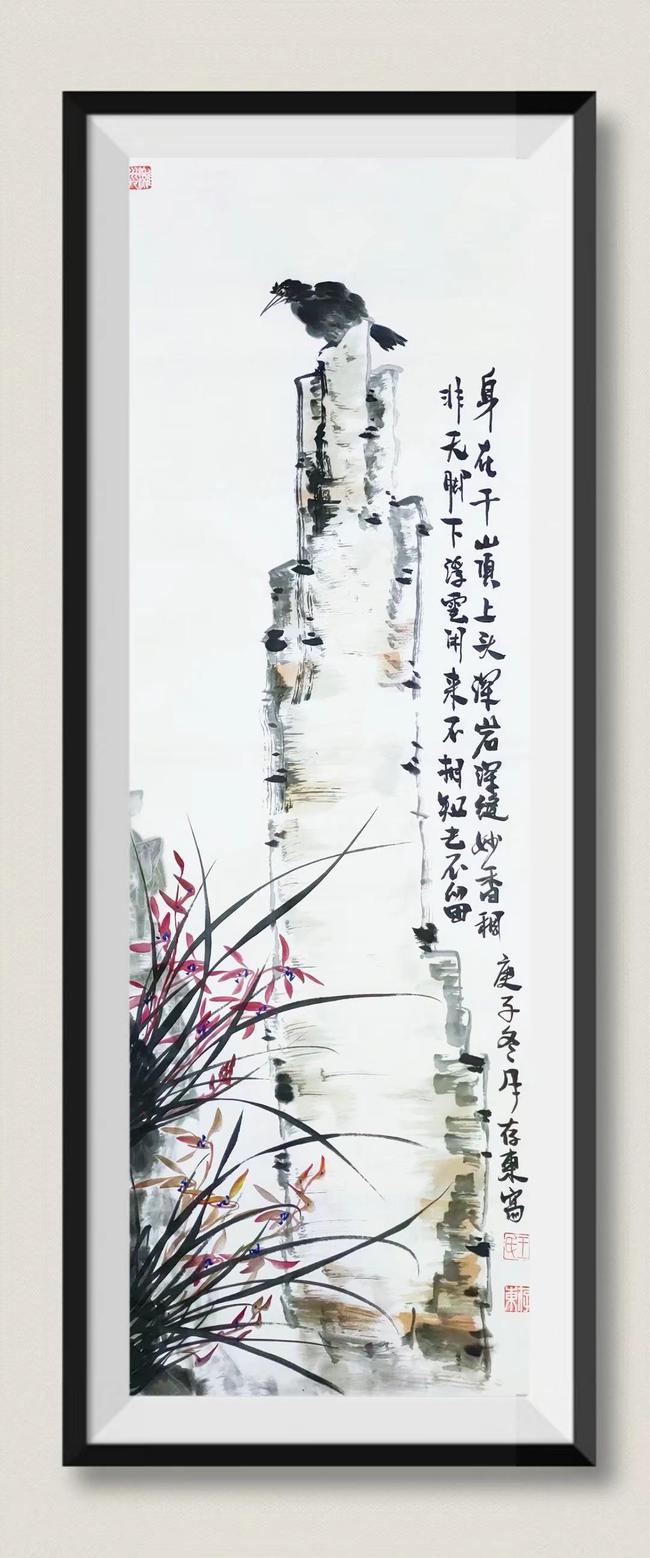 身在千山頂上头深岩深缝妙香稠
非无脚下浮雲闹来不相知去不留
庚子冬月存東寫
存東